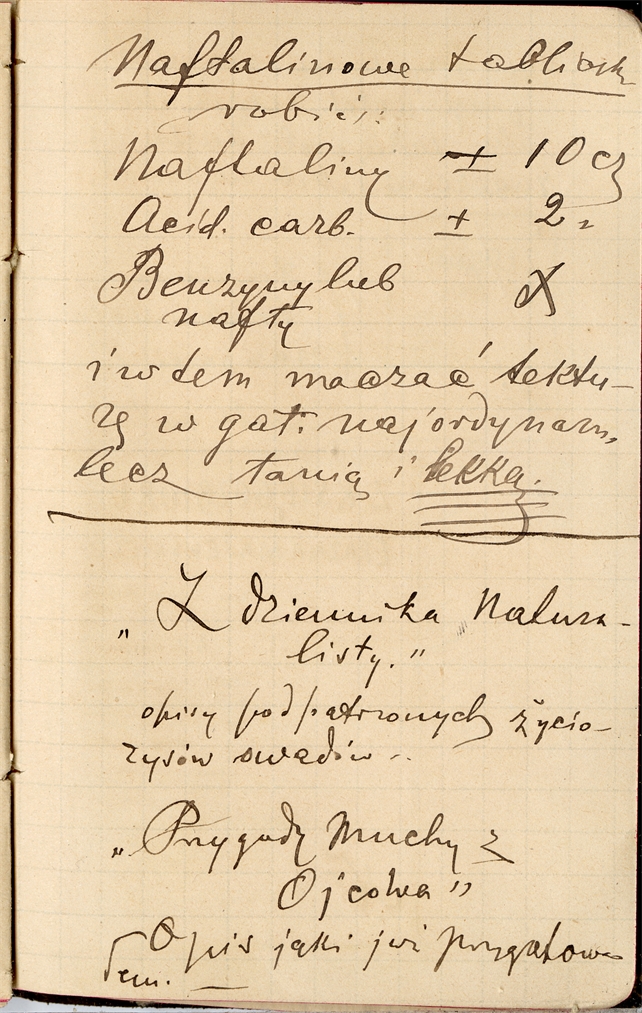 Naftalinowe tabliczki
robić:
Naftaliny ± 10 cz
Acid. carb. ± 2 "
Benzyny lub X
nafty
i w tem maczać tektu-
rę w gat. najordynarn.
lecz tanią i lekką.
„Z dziennika Natura-
listy."
opisy podpatrzonych życio-
rysów owadów ..
„Przygody Muchy z
Ojcowa"
Opis jaki już przygotowa-
łem. —